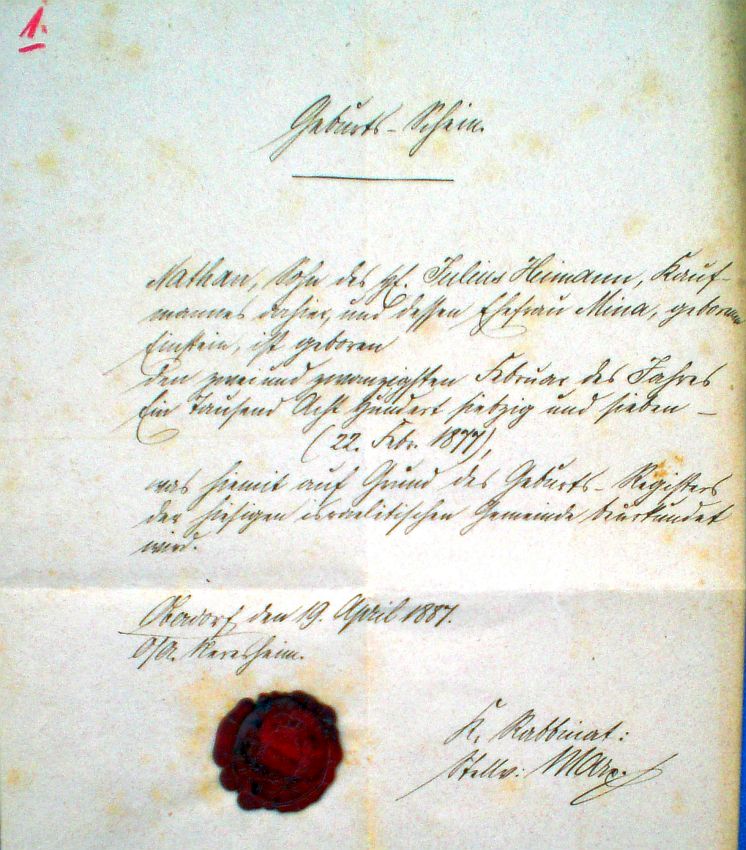 1.
Geburts-Schein.
Nathan, Sohn des H. Julius Heimann, Kauf-
mannes dahier, und dessen Ehefrau Mina, geborene
Einstein, ist geboren
den zwei und zwanzigsten Februar des Jahres
Ein Tausend Acht Hundert siebzig und sieben –
(22. Febr. 1877),
was hiemit auf Grund des Geburts-Registers
der hiesigen israelitischen Gemeinde beurkundet
wird.
Oberdorf den 19. April 1887.
O/A. Neresheim.
K. Rabbinat:
Stellv: Marx.